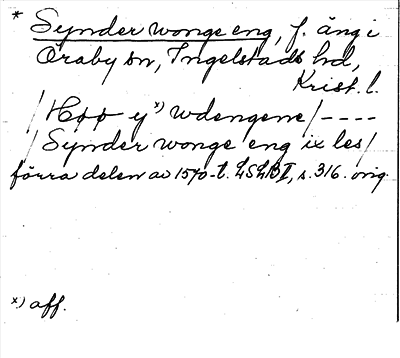 * Synder wonge eng, f. äng i
Öraby sn, Ingelstads hd,
Krist. l.
/ Høø y x) wdengene / ----
/ Synder wonge eng ix les /
förra delen av 1570-t. LSLB II, s. 316. orig.
x) aff.